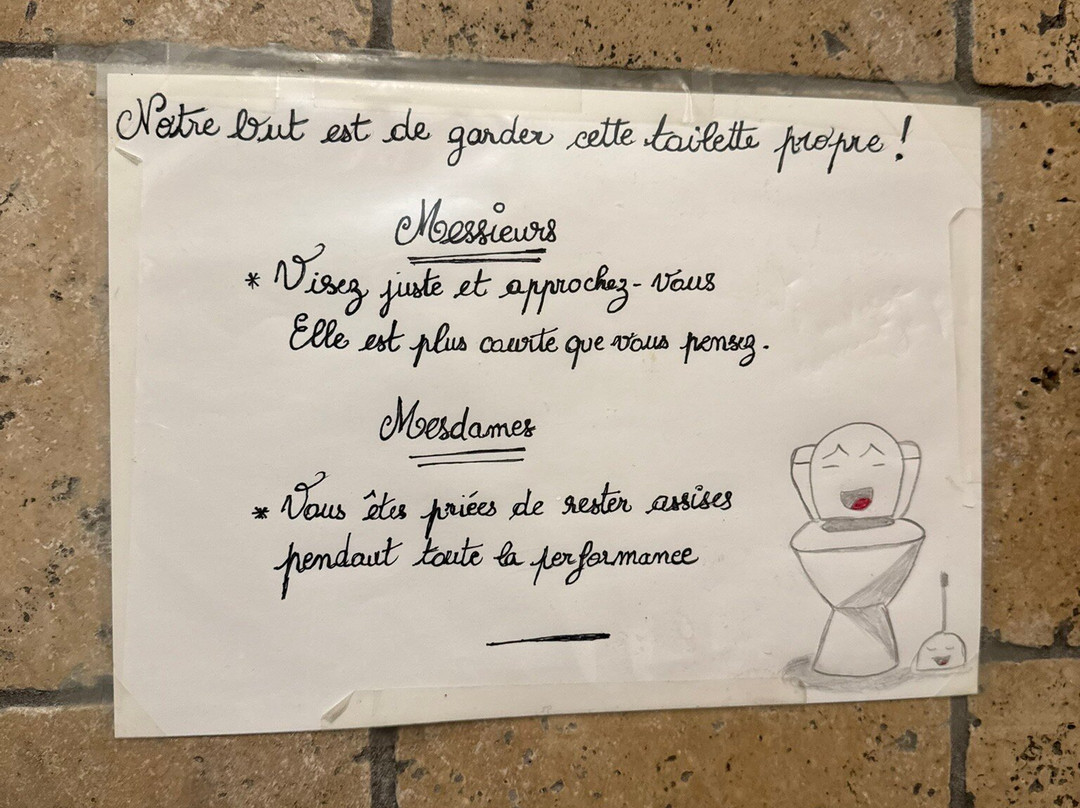 Notre but est de garder cette toilette propre !
Messieurs
* Visez juste et approchez-vous
Elle est plus courte que vous pensez.
Mesdames
* Vous êtes priées de rester assises
pendant toute la performance